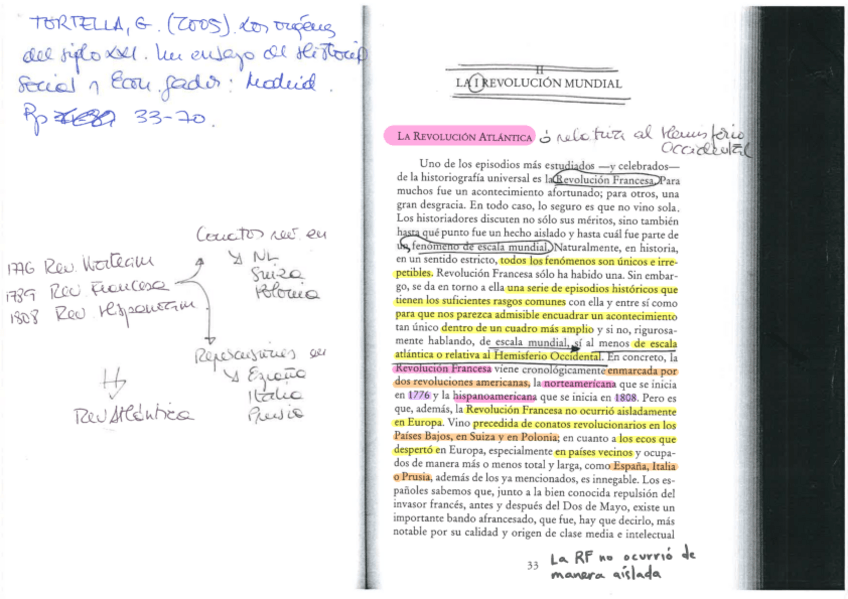 TORTELLA, G. (2005). Los orígenes
del siglo XXI. Un ensayo de Historia
Social y Econ. Gadir: Madrid.
Pp 33-70.
1776 Rev. Norteam
1789 Rev. Francesa
1808 Rev. Hispanoam
Conatos rev. en
NL
Suiza
Polonia
Repercusiones en
España
Italia
Prusia
Rev Atlántica
II
LA I REVOLUCIÓN MUNDIAL
LA REVOLUCIÓN ATLÁNTICA ó relativa al Hemisferio
Occidental
Uno de los episodios más estudiados —y celebrados—
de la historiografía universal es la Revolución Francesa. Para
muchos fue un acontecimiento afortunado; para otros, una
gran desgracia. En todo caso, lo seguro es que no vino sola.
Los historiadores discuten no sólo sus méritos, sino también
hasta qué punto fue un hecho aislado y hasta cuál fue parte de
un fenómeno de escala mundial. Naturalmente, en historia,
en un sentido estricto, todos los fenómenos son únicos e irre-
petibles. Revolución Francesa sólo ha habido una. Sin embar-
go, se da en torno a ella una serie de episodios históricos que
tienen los suficientes rasgos comunes con ella y entre sí como
para que nos parezca admisible encuadrar un acontecimiento
tan único dentro de un cuadro más amplio y si no, rigurosa-
mente hablando, de escala mundial, sí al menos de escala
atlántica o relativa al Hemisferio Occidental. En concreto, la
Revolución Francesa viene cronológicamente enmarcada por
dos revoluciones americanas, la norteamericana que se inicia
en 1776 y la hispanoamericana que se inicia en 1808. Pero es
que, además, la Revolución Francesa no ocurrió aisladamente
en Europa. Vino precedida de conatos revolucionarios en los
Países Bajos, en Suiza y en Polonia; en cuanto a los ecos que
despertó en Europa, especialmente en países vecinos y ocupa-
dos de manera más o menos total y larga, como España, Italia
o Prusia, además de los ya mencionados, es innegable. Los es-
pañoles sabemos que, junto a la bien conocida repulsión del
invasor francés, antes y después del Dos de Mayo, existe un
importante bando afrancesado, que fue, hay que decirlo, más
notable por su calidad y origen de clase media e intelectual
33
La RF no ocurrió de
manera aislada